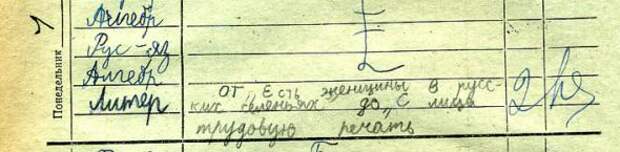 Понедельник
Алгебр
Рус-яз
Алгебр
Литер
от „Есть женщины в русс-
ких селеньях„ до „С лица
трудовую печать
2